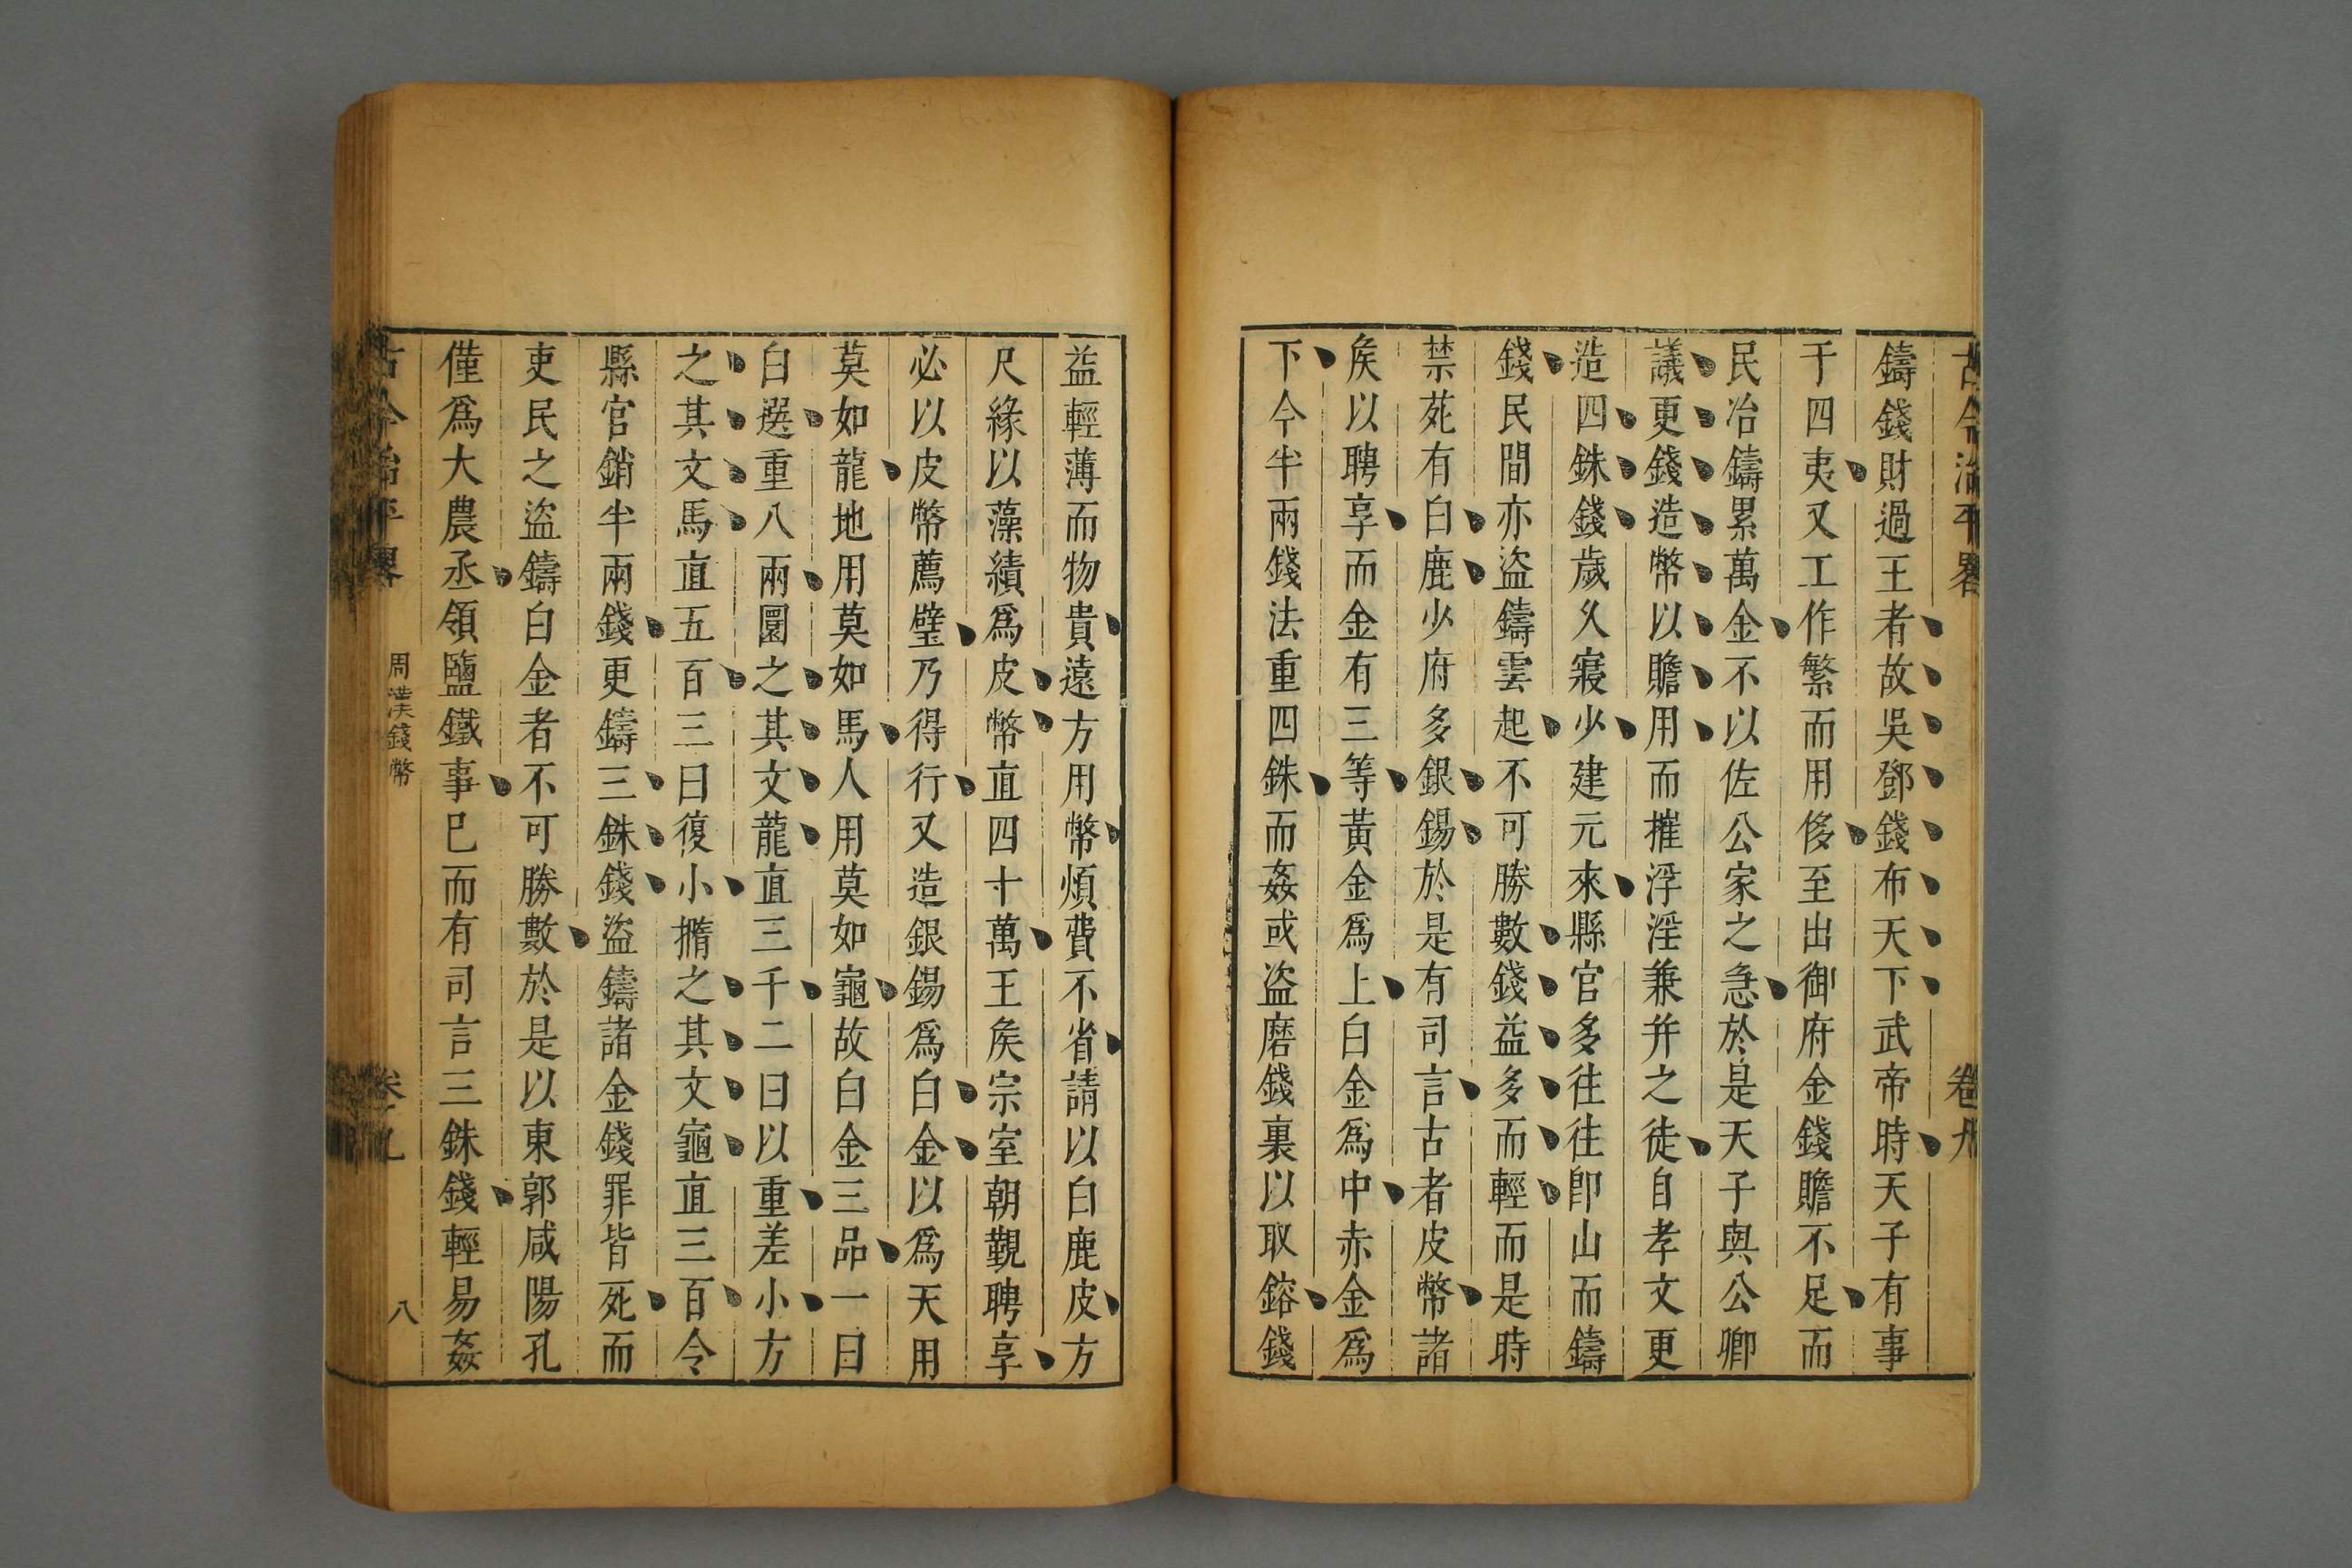 古今治平畧 卷九
鑄錢財過王者故吳鄧錢布天下武帝時天子有事
于四夷又工作繁而用侈至出御府金錢贍不足而
民冶鑄累萬金不以佐公家之急於是天子與公卿
議更錢造幣以贍用而摧浮淫兼并之徒自孝文更
造四銖錢歲久寖少建元來縣官多往往卽山而鑄
錢民間亦盜鑄雲起不可勝數錢益多而輕而是時
禁苑有白鹿少府多銀錫於是有司言古者皮幣諸
矦以聘享而金有三等黃金爲上白金爲中赤金爲
下今半兩錢法重四銖而姦或盜磨錢裏以取鎔錢
益輕薄而物貴遠方用幣煩費不省請以白鹿皮方
尺緣以藻繢爲皮幣直四十萬王矦宗室朝覲聘享
必以皮幣薦璧乃得行又造銀錫爲白金以爲天用
莫如龍地用莫如馬人用莫如龜故白金三品一曰
白選重八兩圜之其文龍直三千二曰以重差小方
之其文馬直五百三曰復小撱之其文龜直三百令
縣官銷半兩錢更鑄三銖錢盜鑄諸金錢罪皆死而
吏民之盜鑄白金者不可勝數於是以東郭咸陽孔
僅爲大農丞領鹽鐵事已而有司言三銖錢輕易姦
古今治平畧 周漢錢幣 卷九 八